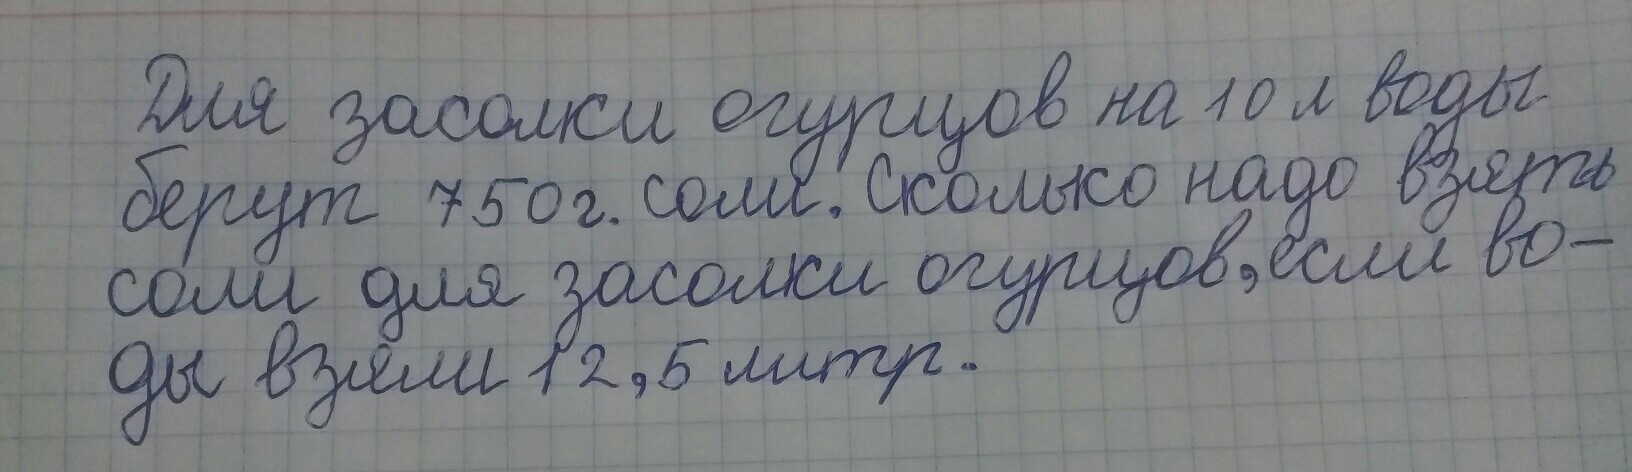 Для засолки огурцов на 10 л воды
берут 750г. соли. Сколько надо взять
соли для засолки огурцов, если во-
ды взяли 12,5 литр.